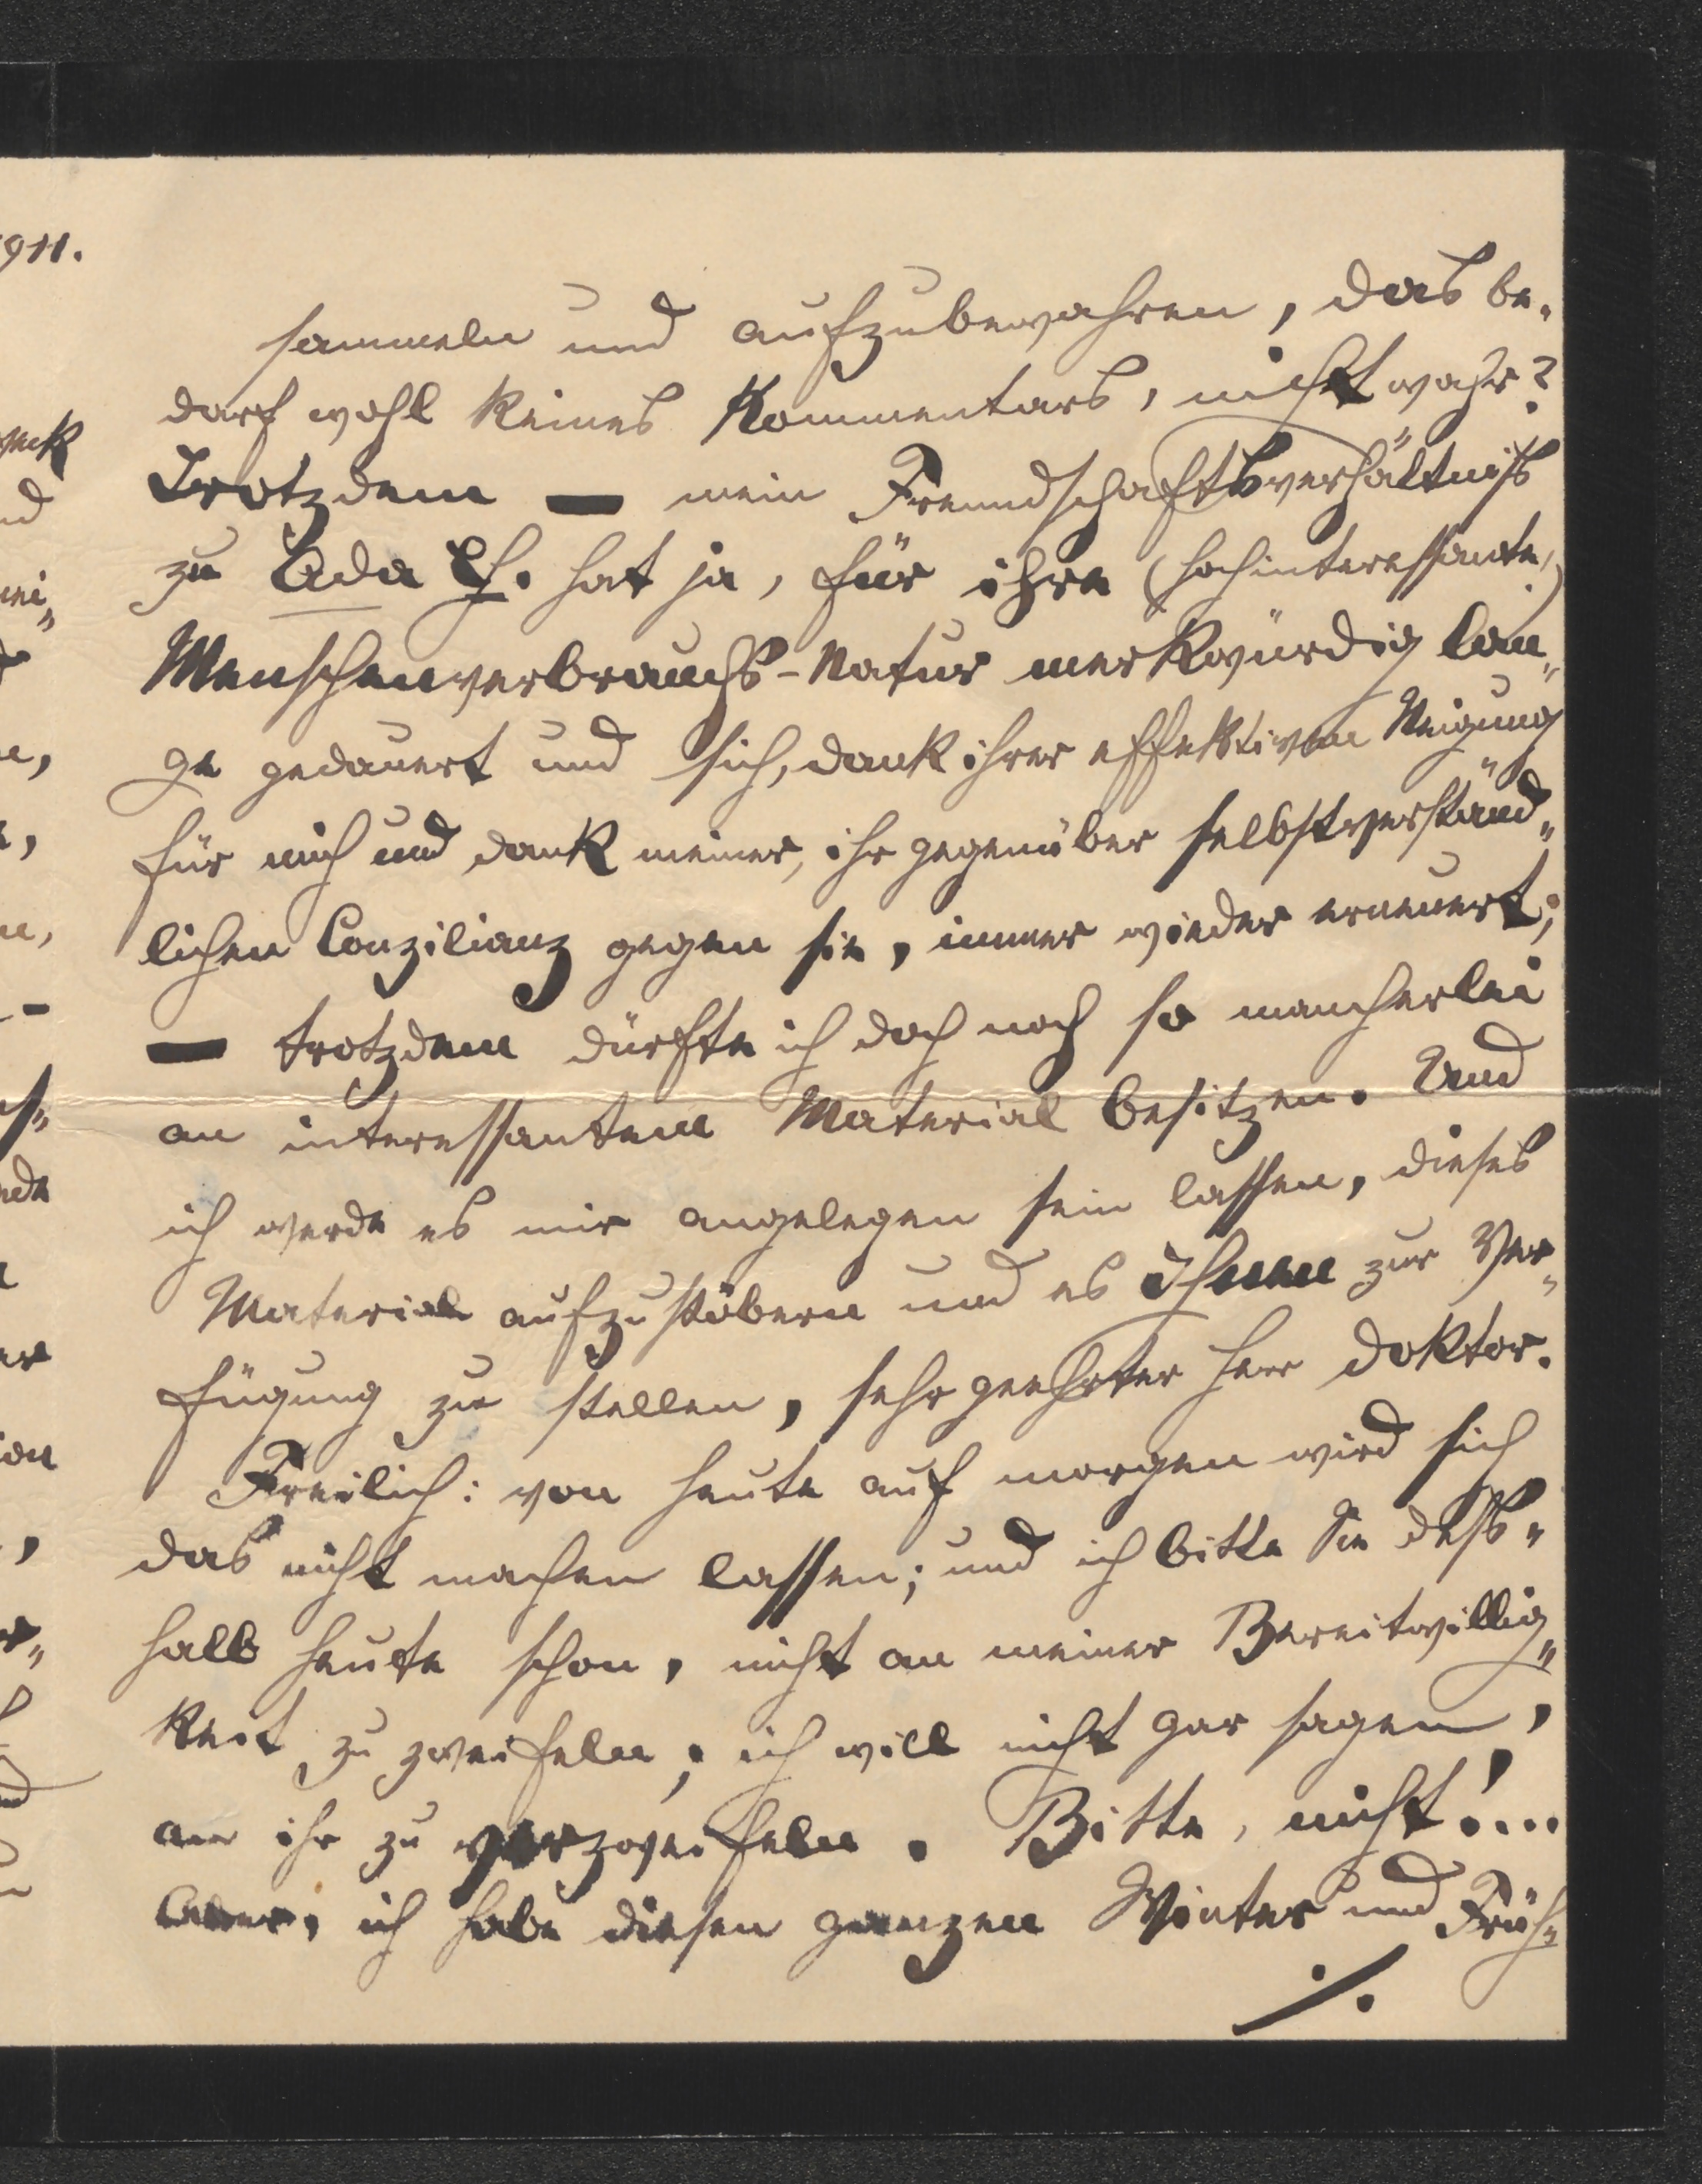 911.
sammeln und aufzubewahren, das be-
darf wohl keines Kommentars, nicht wahr?
Trotzdem — mein Freundschaftsverhältniß
zu Ada Ch. hat ja, für ihre (hochinteressante,)
Menschenverbrauchs-Natur merkwürdig lan-
ge gedauert und sich, dank ihrer effektiven Neigung
für mich und dank meiner, ihr gegenüber selbstverständ-
lichen Conzilianz gegen sie, immer wieder erneuert;
— trotzdem dürfte ich doch noch so mancherlei
an interessantem Material besitzen. Und
ich werde es mir angelegen sein lassen, dieses
Material aufzustöbern und es Ihnen zur Ver-
fügung zu stellen, sehr geehrter Herr Doktor.
Freilich: von heute auf morgen wird sich
das nicht machen lassen; und ich bitte Sie deß-
halb heute schon, nicht an meiner Bereitwillig-
keit zu zweifeln; ich will nicht gar sagen,
an ihr zu verzweifeln. Bitte, nicht!...
Aber, ich habe diesen ganzen Winter und Früh-
./.